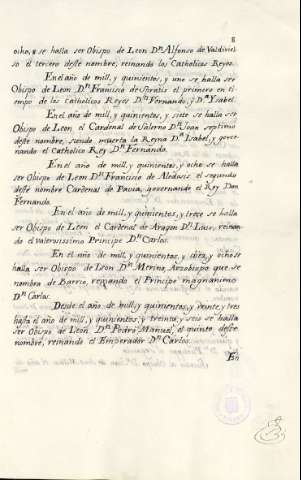 8
ocho, se halla ser Obispo de Leon Dn Alfonso de Valdiviel
so el tercero deste nombre, reinando los Catholicos Reyes.
En el año de mill, y quinientos, y uno se halla ser
Obispo de Leon Dn Francisco de el primero en ti
empo de los catholicos Reyes Dn Fernando, y Da Ysabel.
En el año de mill, y quinientos, y siete se halla ser
Obispo de Leon el Cardenal de Salerno Dn Joan septimo
deste nombre, siendo muerta la Reina Da Isabel, y gover
nando el Catholico Rey Dn Fernando.
En el año de mill, y quinientos, y ocho se halla
ser Obispo de Leon Dn Francisco de Aledosis el segundo
deste nombre Cardenal de Pavia, governando el Rey Don
Fernando.
En el año de mill, y quinientos, y trece se halla
ser Obispo de Leon el Cardenal de Aragon Dn Luis, reinan
do el valerosissimo Principe Dn Carlos.
En el año de mill, y quinientos, y diez, y ocho se
halla ser Obispo de Leon Dn Merino, Arzobispo que se
nombra de Barrio, reinando el Principe magnanimo
Dn Carlos.
Desde el año de mill, y quinientos, y veinte, y tres
hasta el año de mill, y quinientos, y treinta, y seis se halla
ser Obispo de Leon Dn Pedro Manuel, el quinto deste
nombre, reinando el Emperador Dn Carlos.
En